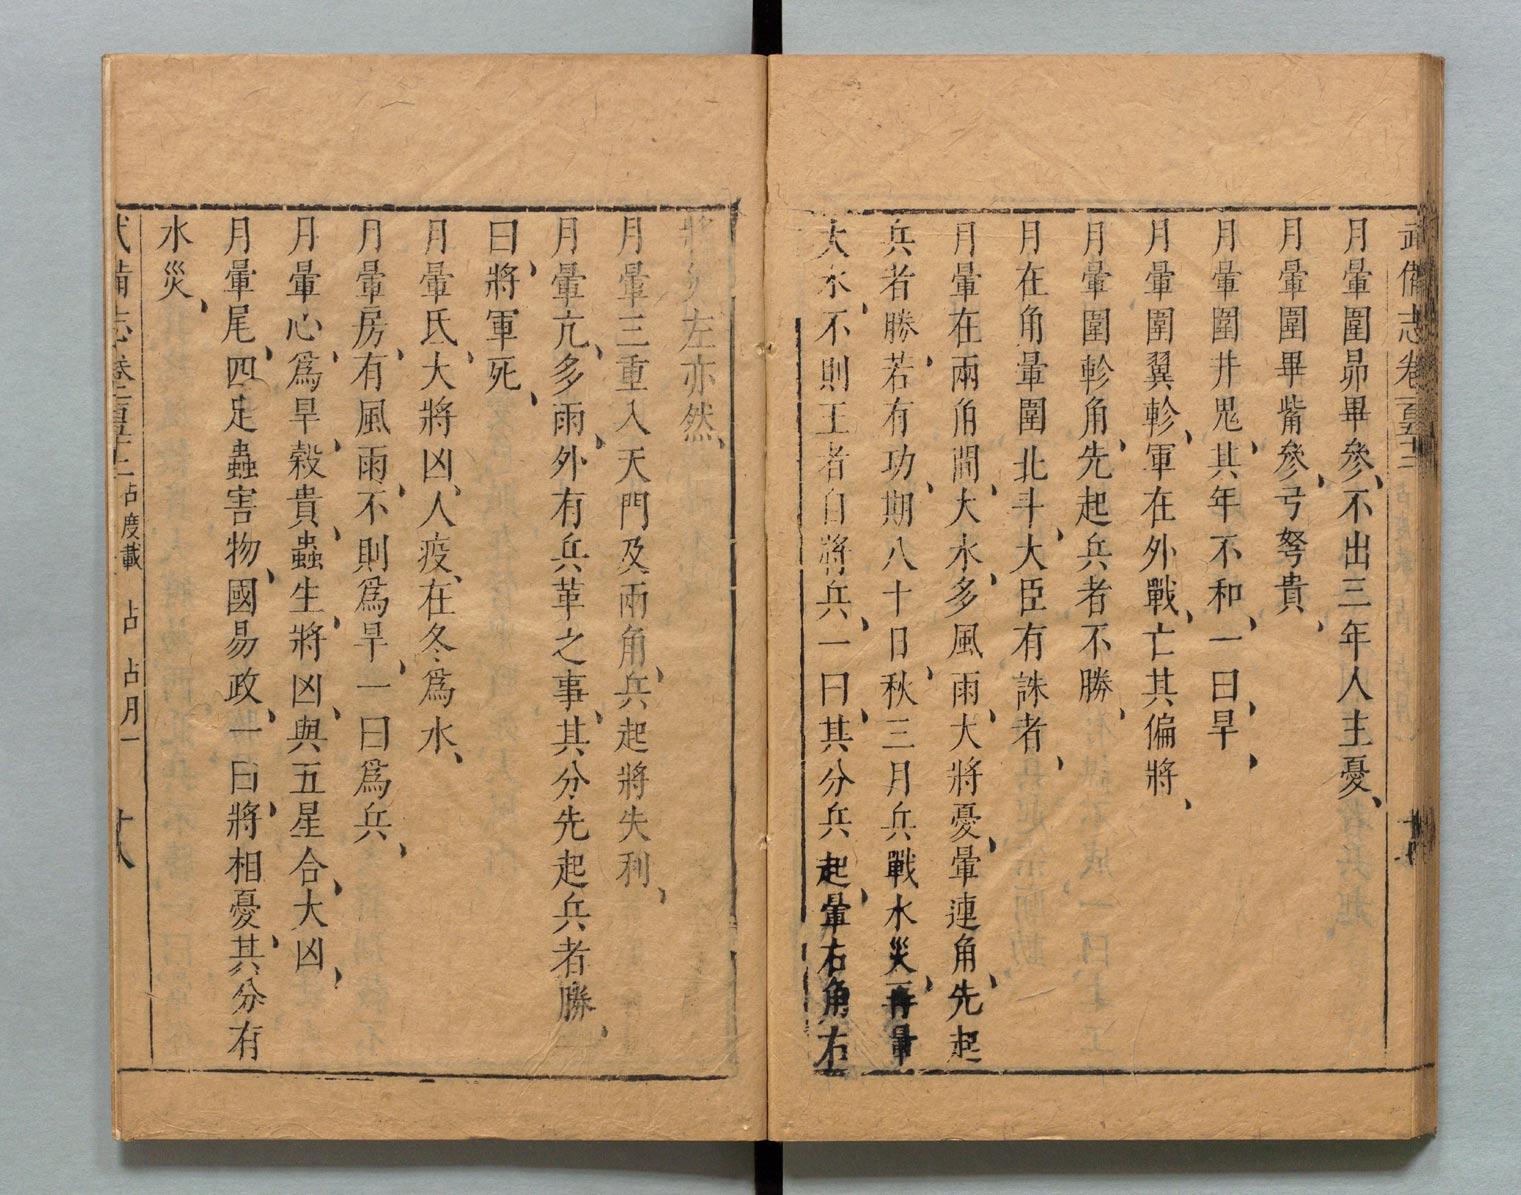 武備志卷一百五十二 占度載 占 占月一
月暈圍昴畢參、不出三年人主憂、
月暈圍畢觜參、弓弩貴、
月暈圍井鬼、其年不和、一曰旱、
月暈圍翼軫、軍在外戰、亡其偏將、
月暈圍軫角、先起兵者不勝、
月在角暈圍北斗、大臣有誅者、
月暈在兩角間、大水、多風雨、大將憂、暈連角、先起
兵者勝、若有功、期八十日、秋三月兵戰水災、再暈
大水、不則王者自將兵、一曰、其分兵起、暈右角右
將死左亦然、
月暈三重入天門及兩角、兵起將失利、
月暈亢、多雨、外有兵革之事、其分先起兵者勝、一
曰、將軍死、
月暈氐、大將凶、人疫、在冬為水、
月暈房、有風雨、不則為旱、一曰為兵、
月暈心、為旱、穀貴、蟲生、將凶、與五星合、大凶、
月暈尾、四足蟲害物、國易政、一曰、將相憂、其分有
水災、
武備志卷一百五十二 占度載 占 占月一 十八